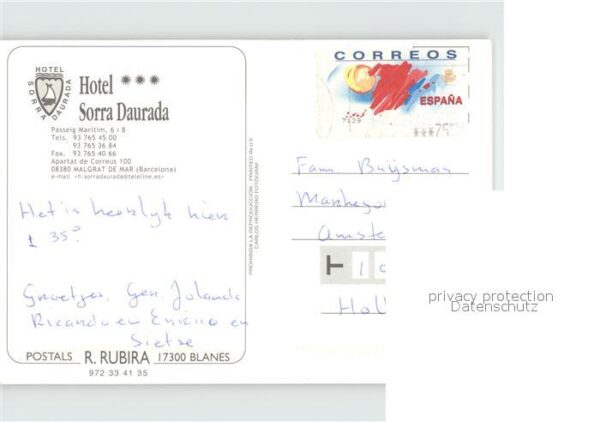 HOTEL
SORRA DAURADA
Hotel ***
Sorra Daurada
Passeig Marítim, 6 i 8
Tels. 93 765 45 00
93 765 36 84
Fax. 93 765 40 66
Apartat de Correus 100
08380 MALGRAT DE MAR (Barcelona)
e-mail <h.sorradaurada@teleline.es>
Het is heerlijk hier
± 35°.
Groetjes. Gen. Jolanda
Ricardo en Enrico en
Sietse
POSTALS R. RUBIRA 17300 BLANES
972 33 41 35
PROHIBIDA LA REPRODUCCIÓN - PRINTED IN U.E.
CARLOS HERRERO FOTÓGRAF
CORREOS
ESPAÑA
7139
***75
Fam. Buijsman
Amste
T 1
Holl
privacy protection
Datenschutz